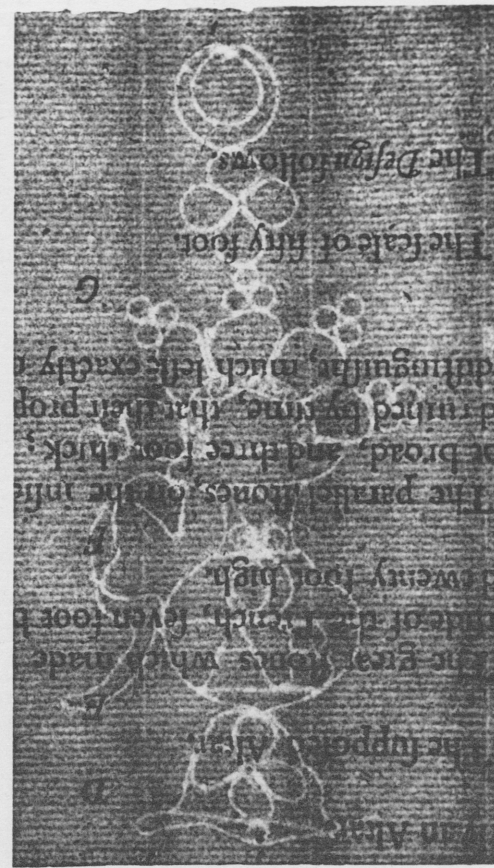 an Altar
D
The ſuppoſed Altar.
E
The great ſtones which made
ſide of the Trench, ſeven foot
twenty foot high.
F
The parallel ſtones, on the
broad, and three foot thick;
ruined by time, that their
diſtinguiſht, much leſſ exactly
G
The ſcale of fifty foot.
The Deſign follows.